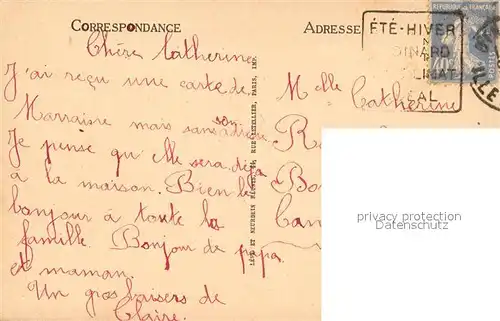 CORRESPONDANCE
ADRESSE
ÉTÉ-HIVER
DINARD
CLIMAT
RÉPUBLIQUE FRANÇAISE
Chère Catherine
J'ai reçu une carte de
Marraine mais sans son adresse
Je pense qu'elle sera déjà
à la maison. Bien le
bonjour à toute la
famille. Bonjour de papa
et maman.
Un gros baisers de
Claire.
LÉVY ET NEURDEIN RÉUNIS, 44, RUE LETELLIER, PARIS, IMP.
Melle Catherine
privacy protection
Datenschutz